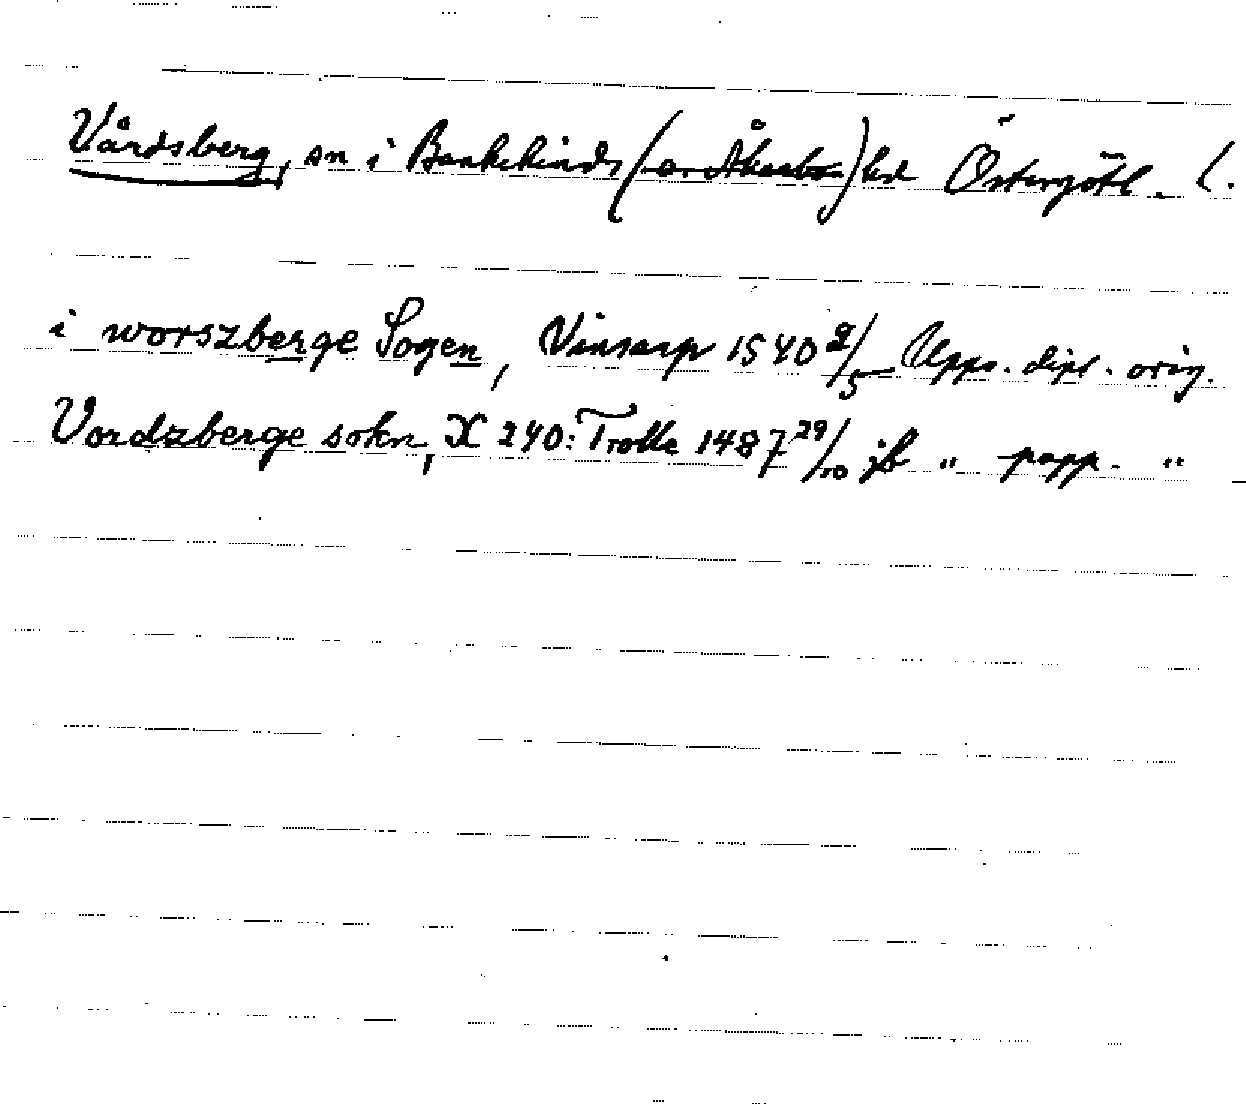 Vårdsberg, sn i Bankekinds (o. Åkerbo) hd Östergötl. l.
i worszberge Sogen, Vinsarp 1540 9/5 Upps. dipl. orig.
Vordzberge sokn, X 240: Trolle 1487 29/10 jb " papp. "